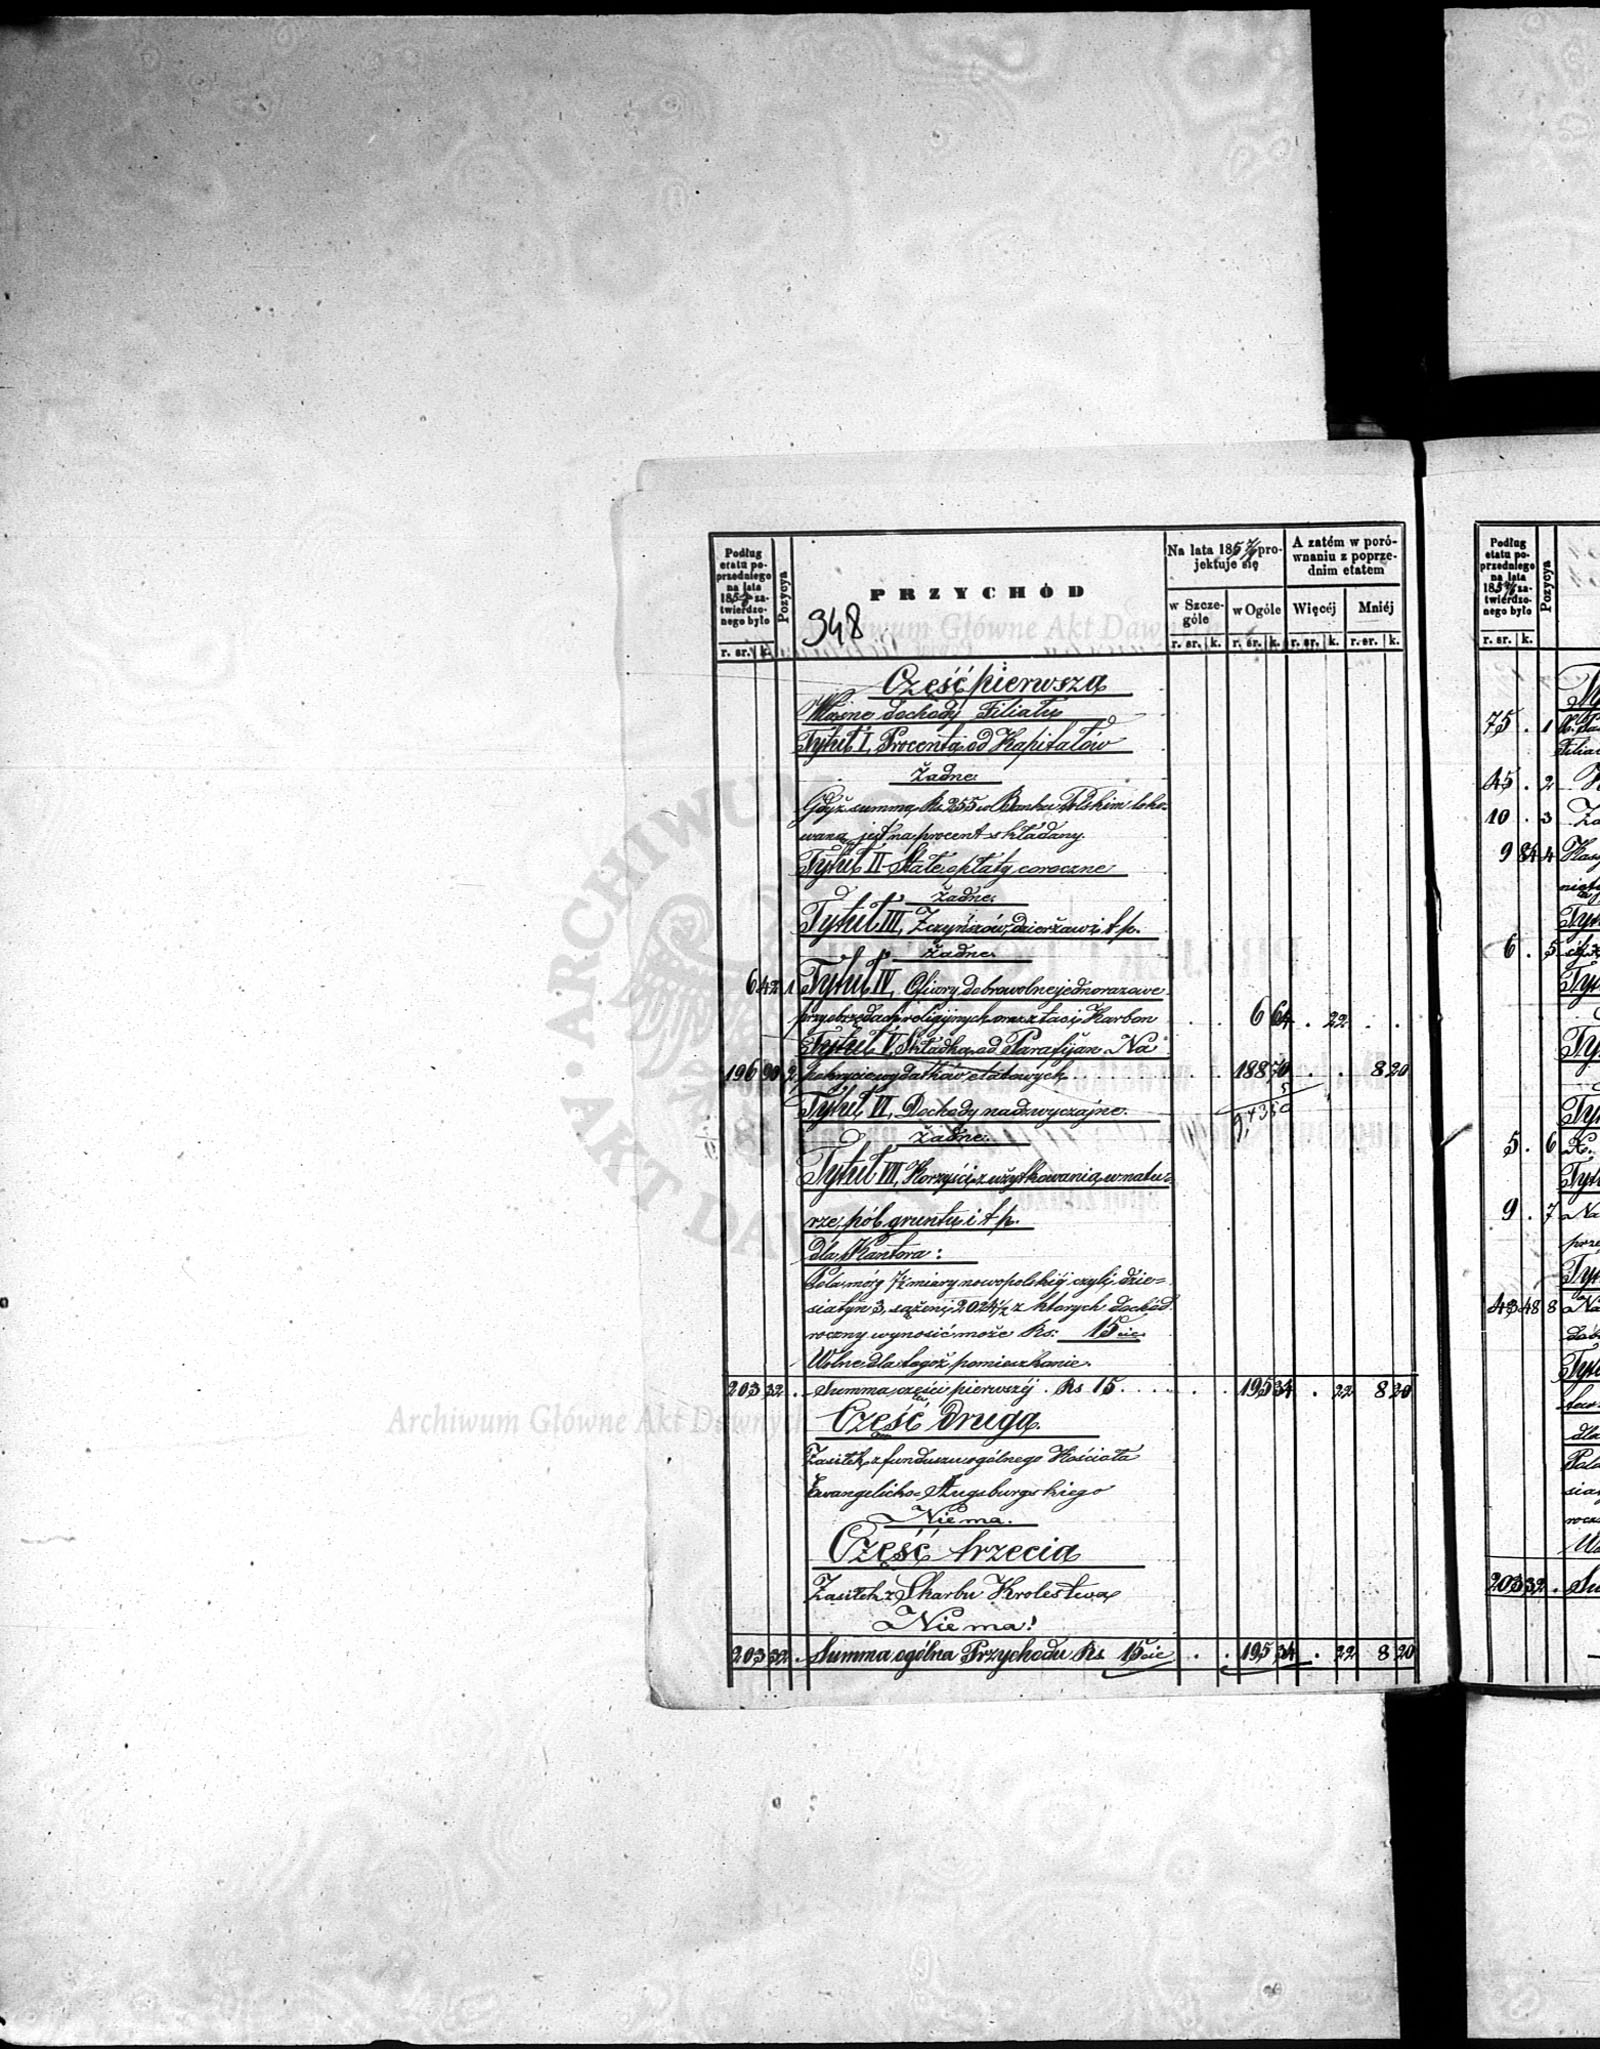 Podług etatu poprzedniego na lata 185 zatwierdzonego było
Pozycya
PRZYCHÓD
Na lata 185 projektuje się
A zatém w porównaniu z poprzednim etatem
w Szczególe
w Ogóle
Więcéj
Mniéj
r. sr. k.
r. sr. k. r. sr. k. r. sr. k. r. sr. k.
948
Część pierwsza
Własne dochody Filiału
Tytuł I, Procenta od Kapitałów
Żadne
Gdyż summa Rs 255 w Banku Polskim loko-
waną jest na procent składany
Tytuł II Stałe opłaty coroczne
Żadne
Tytuł III, Z czynszów, dzierżaw i t p.
Żadne
6 42 1 Tytuł IV, Ofiary dobrowolne jednorazowe
przy obrzędach religijnych oraz z tac i Karbon . . 6 64 . 22 . .
Tytuł V, Składka od Parafijan Na
196 90 2 pokrycie wydatków etatowych . . . 188 70 . . 8 20
Tytuł VI, Dochody nadzwyczajne.
Żadne
Tytuł VII, Korzyści z użytkowania w natu-
rze, pól, gruntu i t p.
dla Kantora:
Pola mórg 7½ miary nowopolskiéj czyli dzie-
siatyn 3, sążeni 2024½ z których dochód
roczny wynosić może Rs: 15
Wolne dla tegoż pomieszkanie.
203 32 . Summa części pierwszéj . Rs 15 . . . . 195 34 . 22 8 20
Część Druga
Zasiłek z funduszu ogólnego Kościoła
Ewangelicko-Augsburgskiego
Niema.
Część trzecia
Zasiłek z Skarbu Krolestwa
Niema!
203 32 . Summa ogólna Przychodu Rs 15 . . 195 34 . 22 8 20
Podług etatu poprzedniego na lata 185 zatwierdzonego było
Pozycya
r. sr. k.
75 . 1
45 . 2
10 . 3
9 84 4
6 . 5
5 . 6
9 . 7
43 48 8
203 32 .
Archiwum Główne Akt Dawnych
Archiwum Główne Akt Dawnych